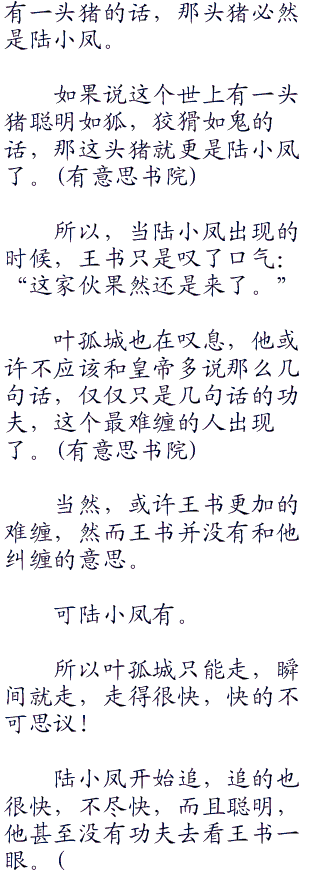 有一头猪的话，那头猪必然
是陆小凤。
如果说这个世上有一头
猪聪明如狐，狡猾如鬼的
话，那这头猪就更是陆小凤
了。(有意思书院)
所以，当陆小凤出现的
时候，王书只是叹了口气：
“这家伙果然还是来了。”
叶孤城也在叹息，他或
许不应该和皇帝多说那么几
句话，仅仅只是几句话的功
夫，这个最难缠的人出现
了。(有意思书院)
当然，或许王书更加的
难缠，然而王书并没有和他
纠缠的意思。
可陆小凤有。
所以叶孤城只能走，瞬
间就走，走得很快，快的不
可思议！
陆小凤开始追，追的也
很快，不尽快，而且聪明，
他甚至没有功夫去看王书一
眼。(